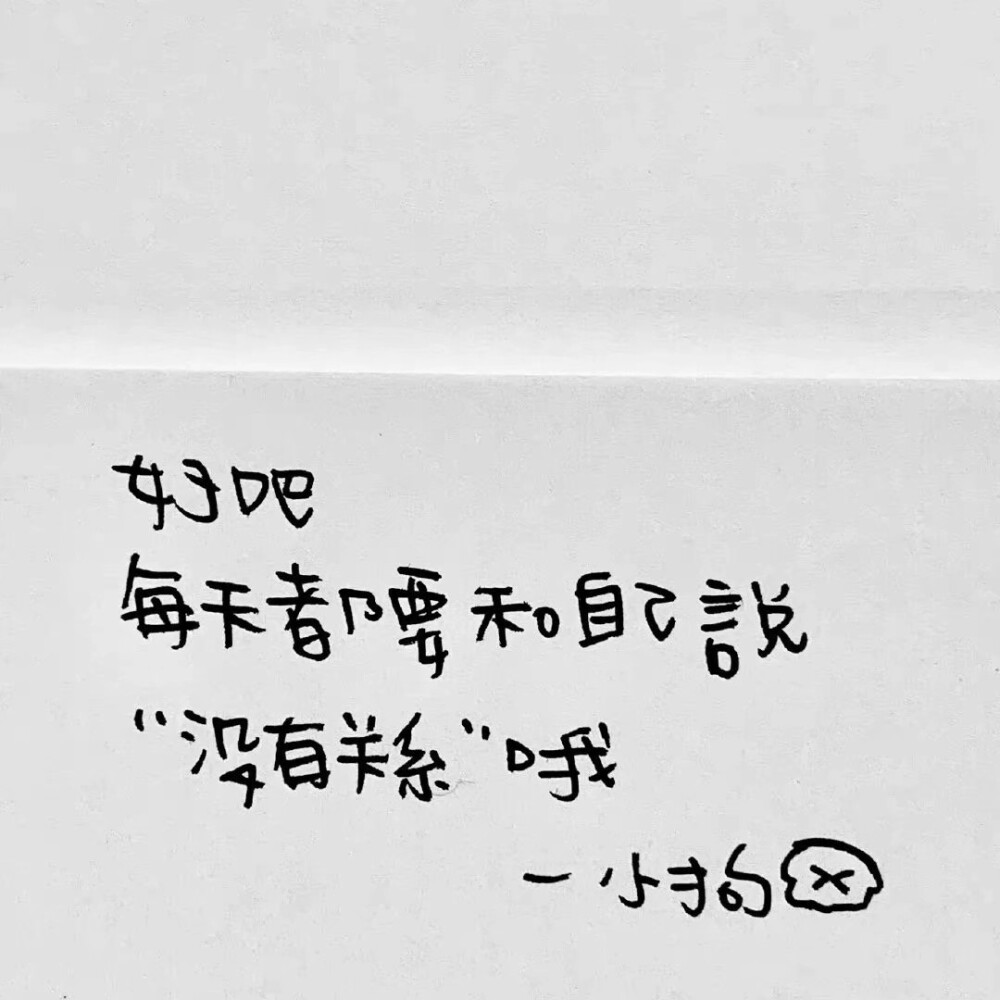 好吧
每天都要和自己說
“没有关系”哦
一小狗